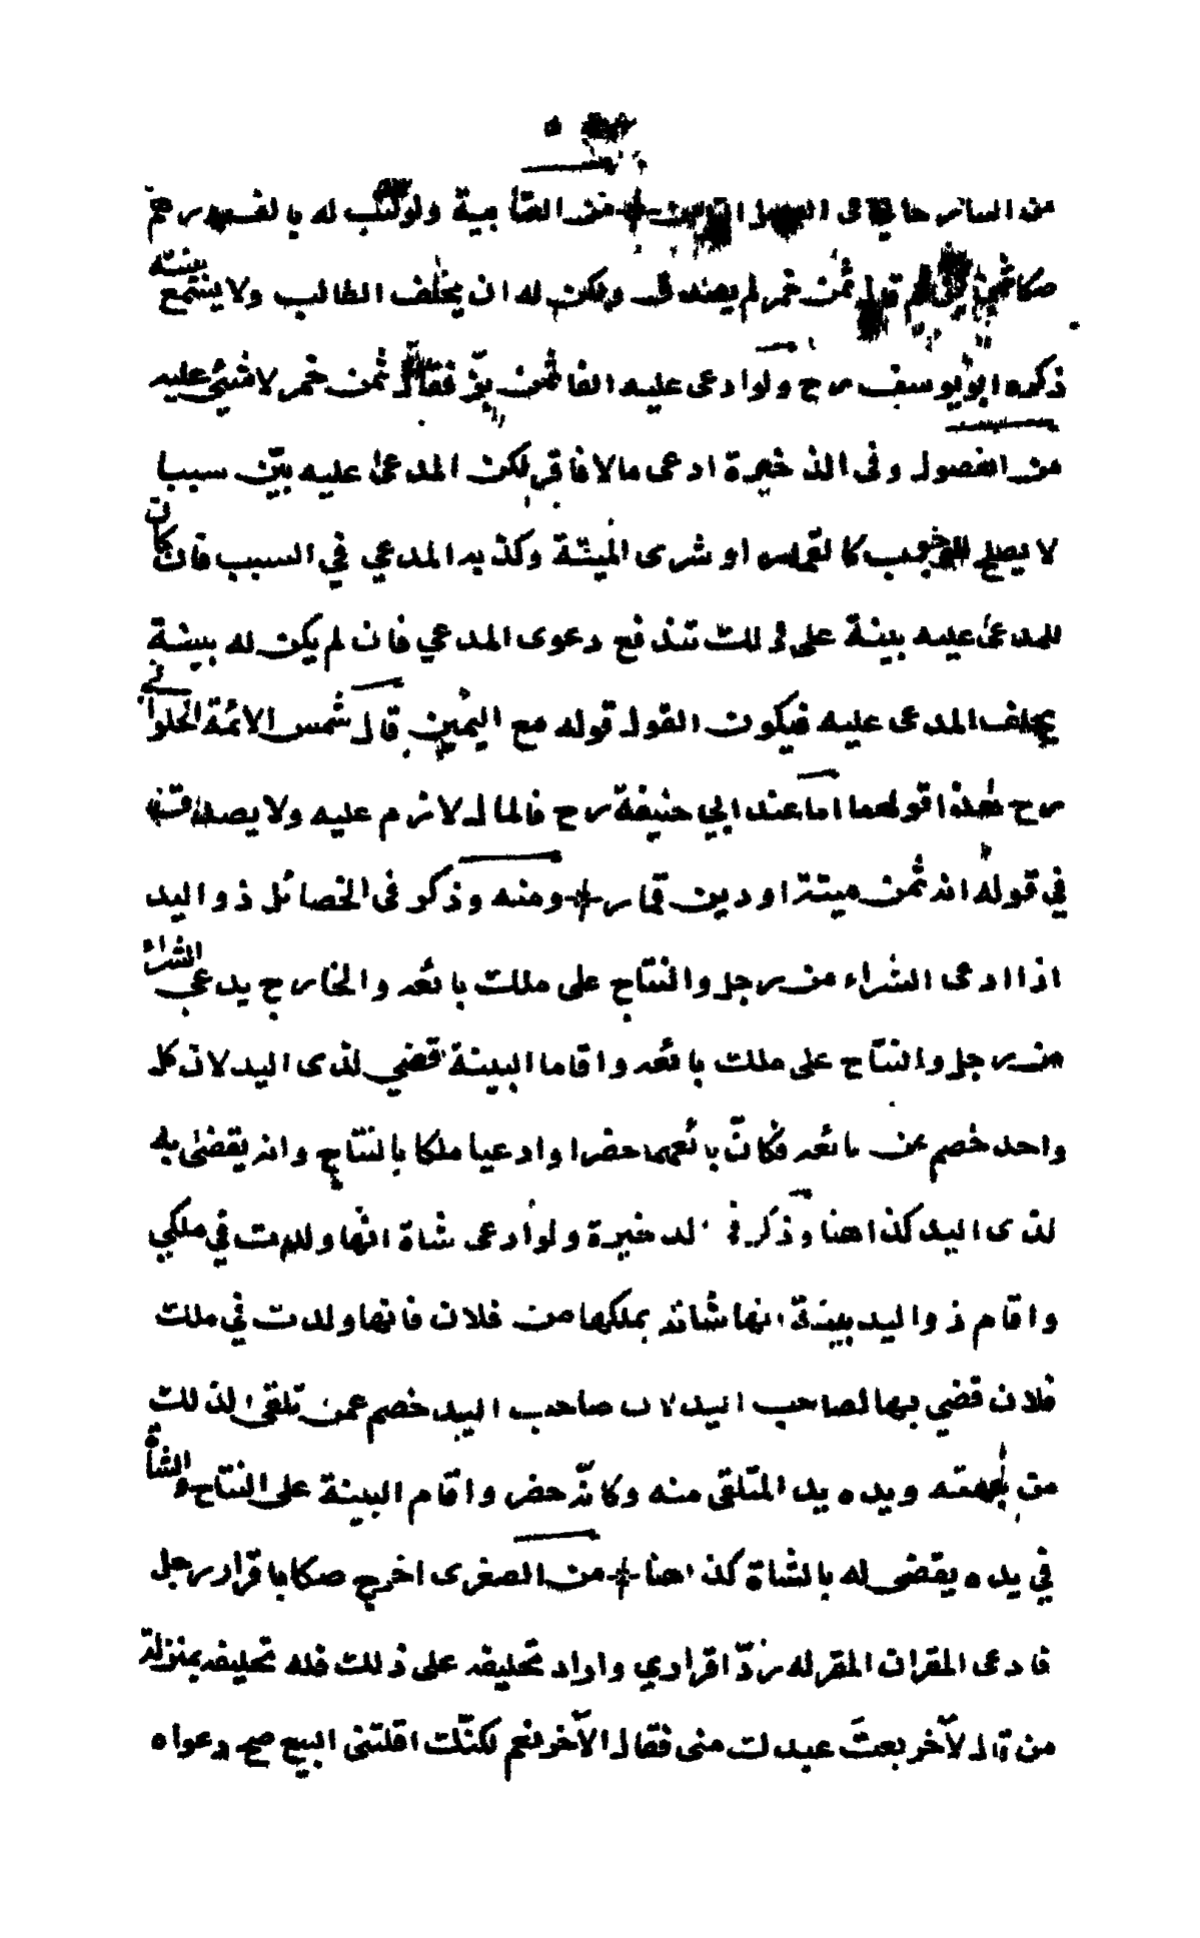 من العتابية ولو كتب له بالف درهم
صكا ثمن خمر لم يصدق ولكن له ان يحلف الطالب ولا يسمع بينته
ذكره ابو يوسف رح ولو ادعى عليه الفا ثمن بز فقال ثمن خمر لا شيئ عليه
من الفصول وفى الذخيرة ادعى مالا فاقر لكن المدعى عليه بيّن سببا
لا يصلح للوجوب كالقمار او شرى الميتة وكذبه المدعي في السبب فان كان
للمدعى عليه بينة على ذلك تندفع دعوى المدعي فان لم يكن له بينة
يحلف المدعى عليه فيكون القول قوله مع اليمين قال شمس الائمة الحلواني
رح هذا قولهما اما عند ابي حنيفة رح فالمال لازم عليه ولا يصدق
في قوله انه ثمن ميتة او دين قمار ومنه وذكر فى الخصائل ذو اليد
اذا ادعى الشراء من رجل والنتاج على ملك بائعه والخارج يدعي الشراء
من رجل والنتاج على ملك بائعه واقاما البينة قضي لذى اليد لان كل
واحد خصم عن بائعه فكانّ بائعهما حضرا وادعيا ملكا بالنتاج وانه يقضى به
لذى اليد كذا هنا وذكر في الذخيرة ولو ادعى شاة انها ولدت في ملكي
واقام ذو اليد بينة انها شاته يملكها من فلان فانها ولدت في ملك
فلان قضي بها لصاحب اليد لان صاحب اليد خصم عمن تلقى الملك
من جهته ويده يد المتلقى منه وكانّه حضر واقام البينة على النتاج والشاة
في يده يقضى له بالشاة كذا هنا من الصغرى اخرج صكا باقرار رجل
فادعى المقر ان المقر له ردّ اقراري واراد تحليفه على ذلك فله تحليفه بمنزلة
من قال لآخر بعتَ عبدك منى فقال الآخر نعم لكنّك اقلتنى البيع صح دعواه